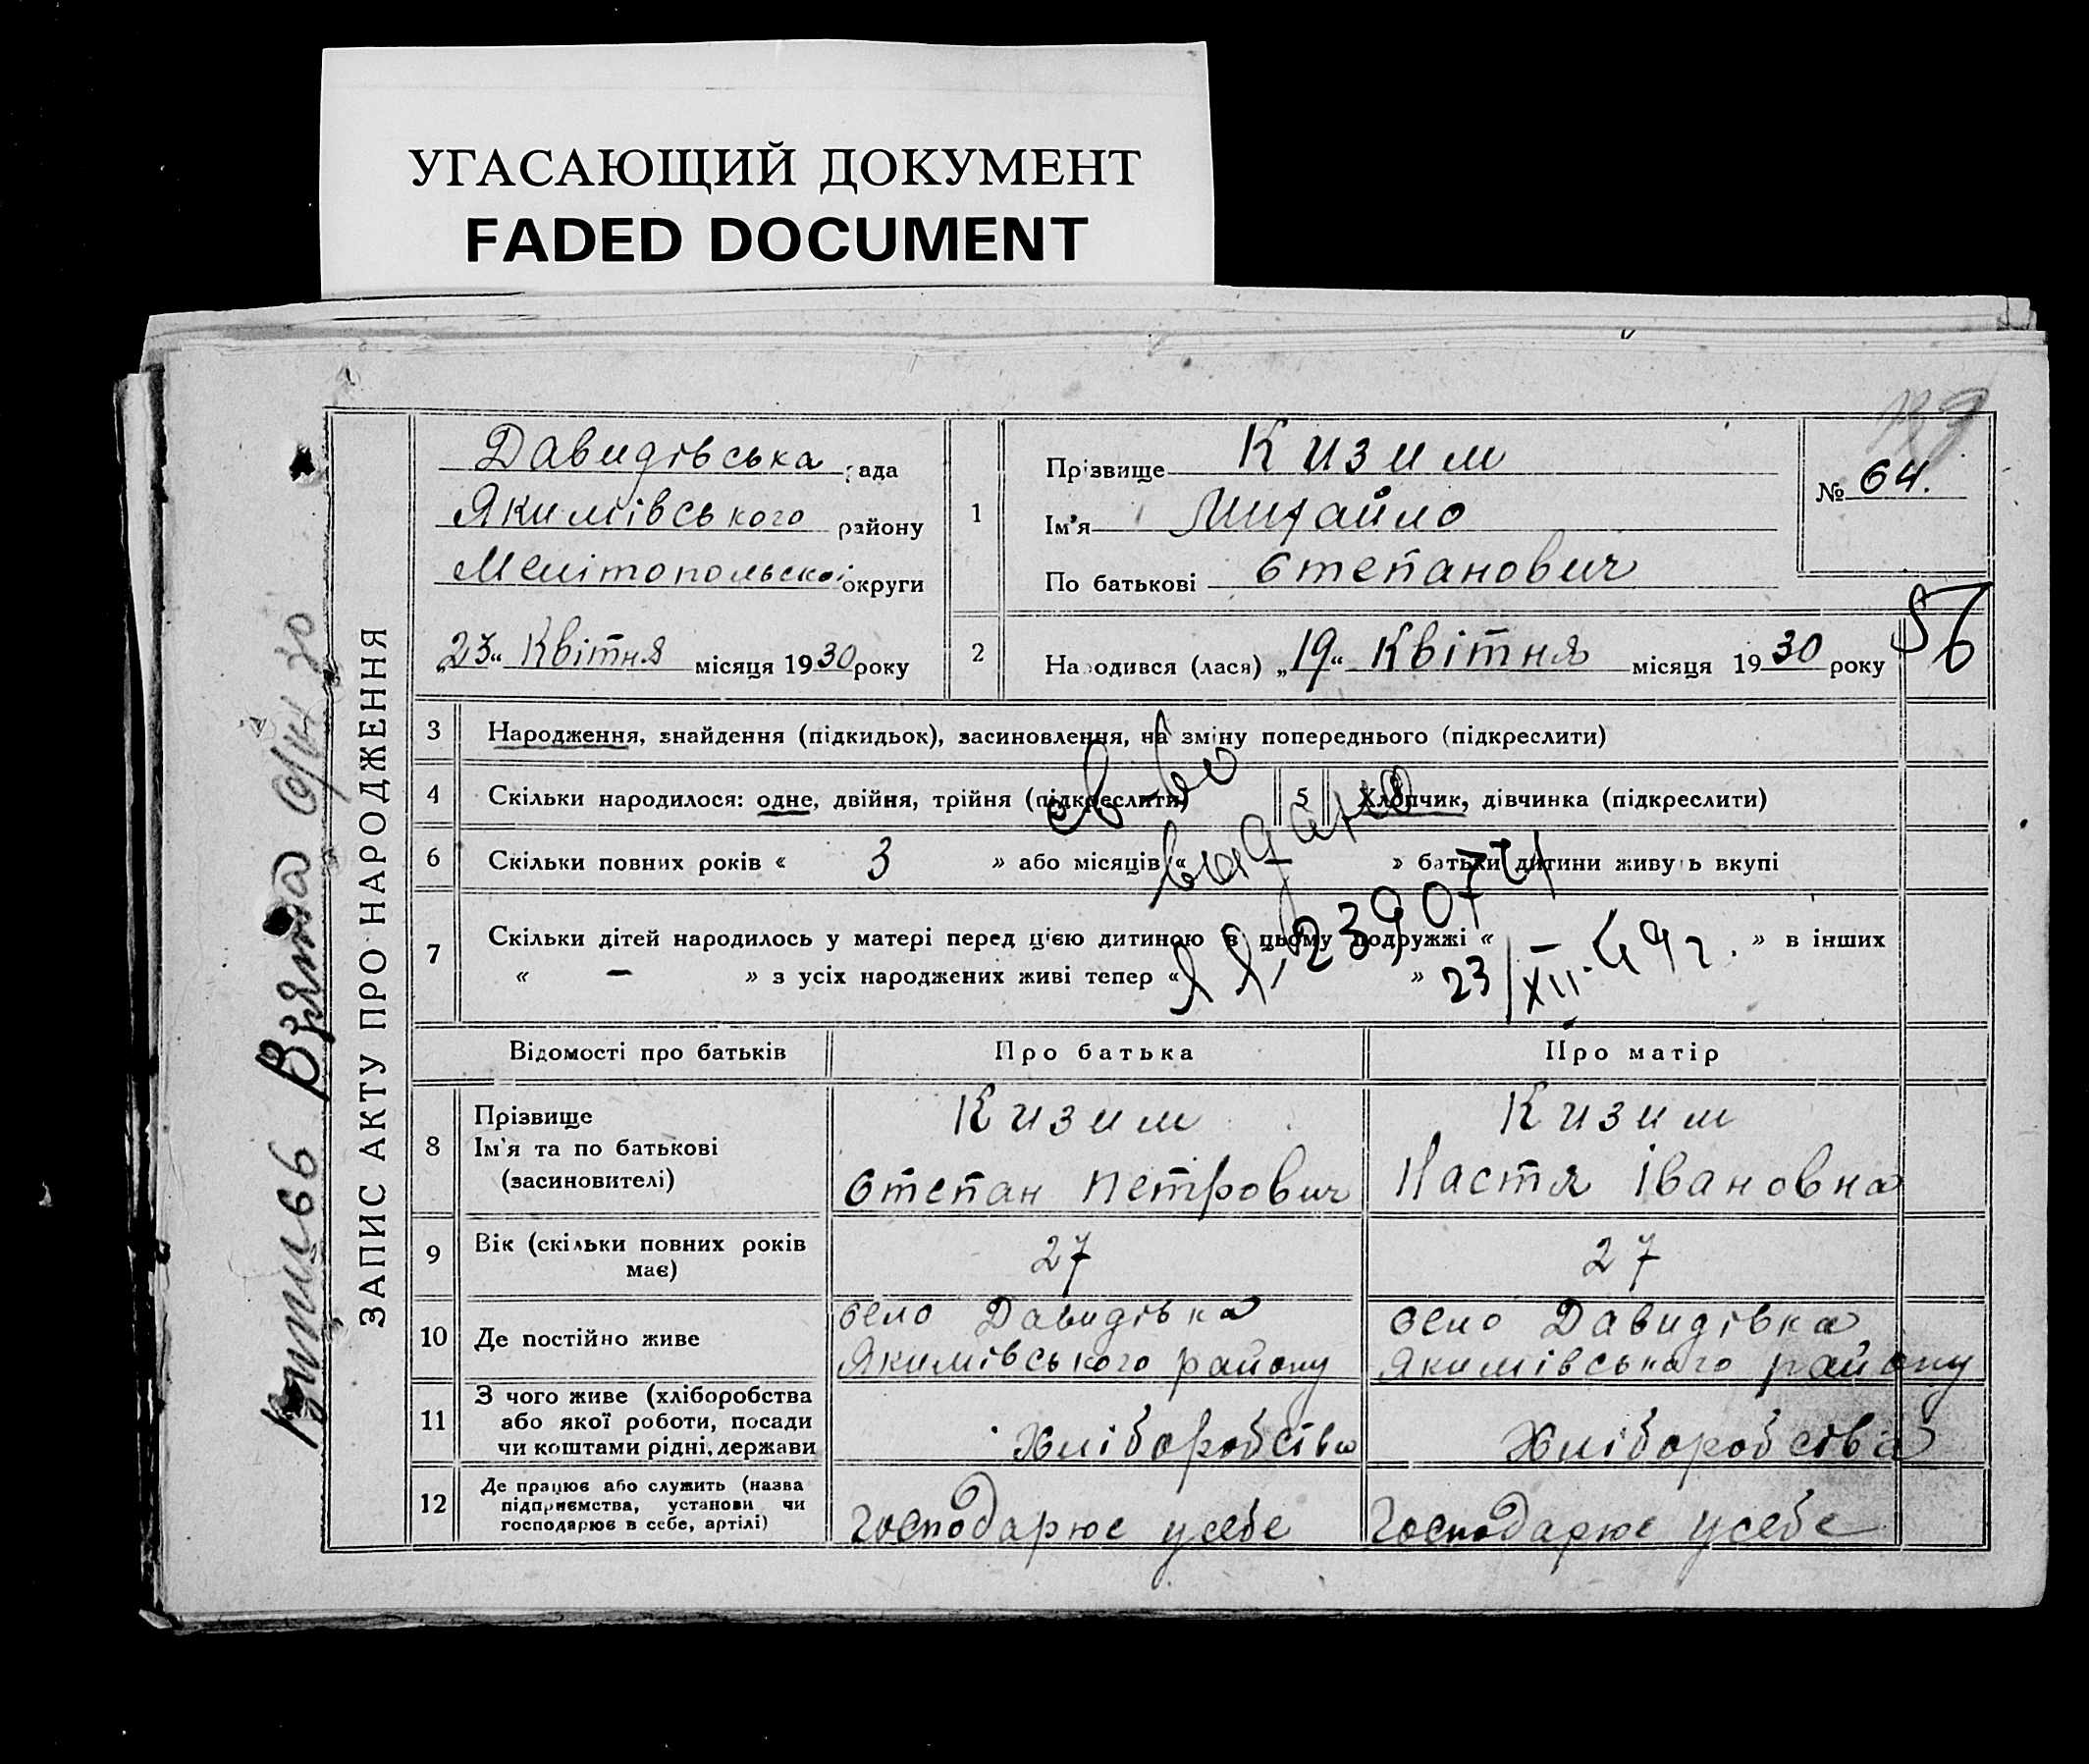 УГАСАЮЩИЙ ДОКУМЕНТ
FADED DOCUMENT
ЗАПИС АКТУ ПРО НАРОДЖЕННЯ
Давидівська рада
Якимівського району
Мелітопольської округи
„23“ Квітня місяця 1930 року
1
Прізвище Кизим
Ім'я Михайло
По батькові Степанович
№ 64.
2
Народився (лася) „19“ Квітня місяця 1930 року
56
3 Народження, знайдення (підкидьок), засиновлення, на зміну попереднього (підкреслити)
4 Скільки народилося: одне, двійня, трійня (підкреслити) 5 Хлопчик, дівчинка (підкреслити)
6 Скільки повних років « 3 » або місяців « » батьки дитини живуть вкупі
7 Скільки дітей народилось у матері перед цією дитиною в цьому подружжі « – » в інших
« – » з усіх народжених живі тепер « »
св-во
выдано
239071
23/XII-49 г.
Відомості про батьків Про батька Про матір
8 Прізвище
Ім'я та по батькові
(засиновителі)
Кизим
Степан Петрович
Кизим
Настя Івановна
9 Вік (скільки повних років
має)
27
27
10 Де постійно живе
село Давидівка
Якимівського району
село Давидівка
Якимівського району
11 З чого живе (хліборобства
або якої роботи, посади
чи коштами рідні, держави
Хліборобства
Хліборобства
12 Де працює або служить (назва
підприємства, установи чи
господарює в себе, артілі)
Господарює усебе
Господарює усебе
Взята